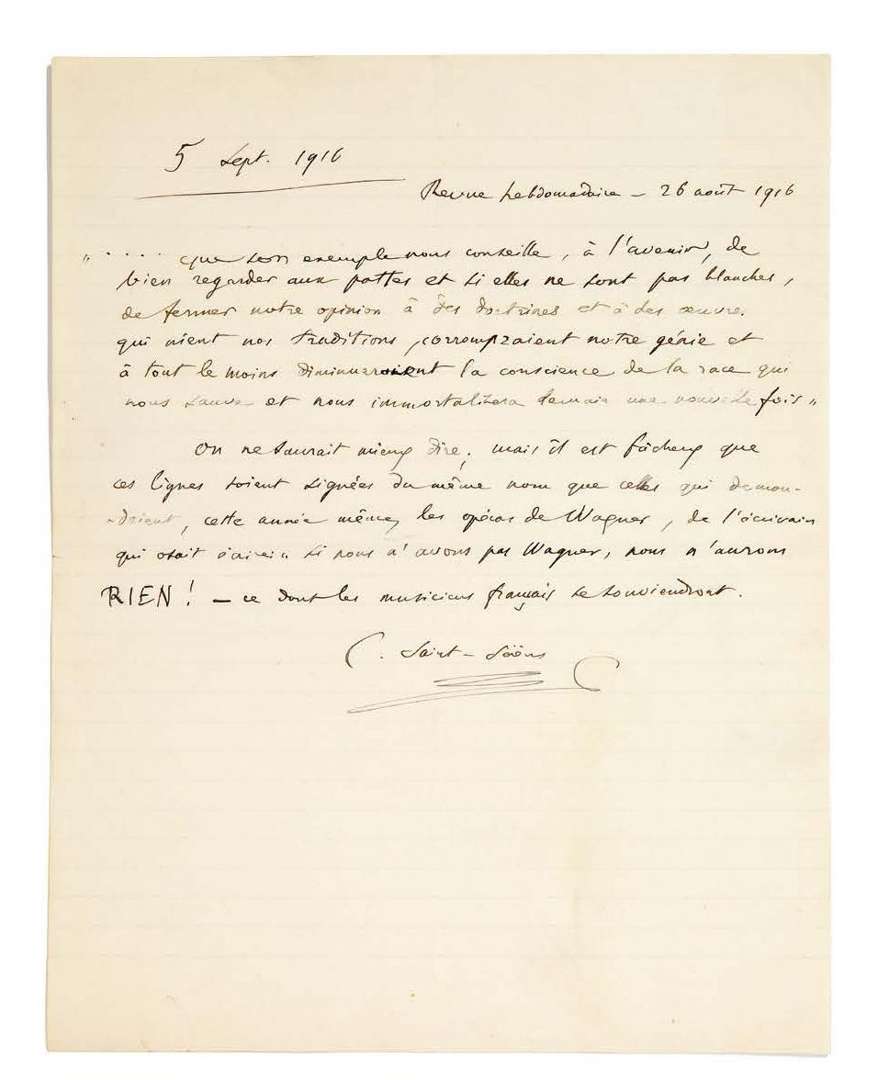 5 Sept. 1916
Revue hebdomadaire – 26 août 1916
" . . . . que son exemple nous conseille, à l'avenir, de
bien regarder aux pattes et si elles ne sont pas blanches,
de fermer notre opinion à des doctrines et à des œuvres
qui nient nos traditions, corrompraient notre génie et
à tout le moins diminueraient la conscience de la race qui
nous sauve et nous immortalisera demain une nouvelle fois "
On ne saurait mieux dire ; mais il est fâcheux que
ces lignes soient signées du même nom que celles qui deman-
-daient, cette année même, les opéras de Wagner, de l'écrivain
qui osait écrire : « Si nous n'avons pas Wagner, nous n'aurons
RIEN ! – ce dont les musiciens français se souviendront.
C. Saint-Saëns